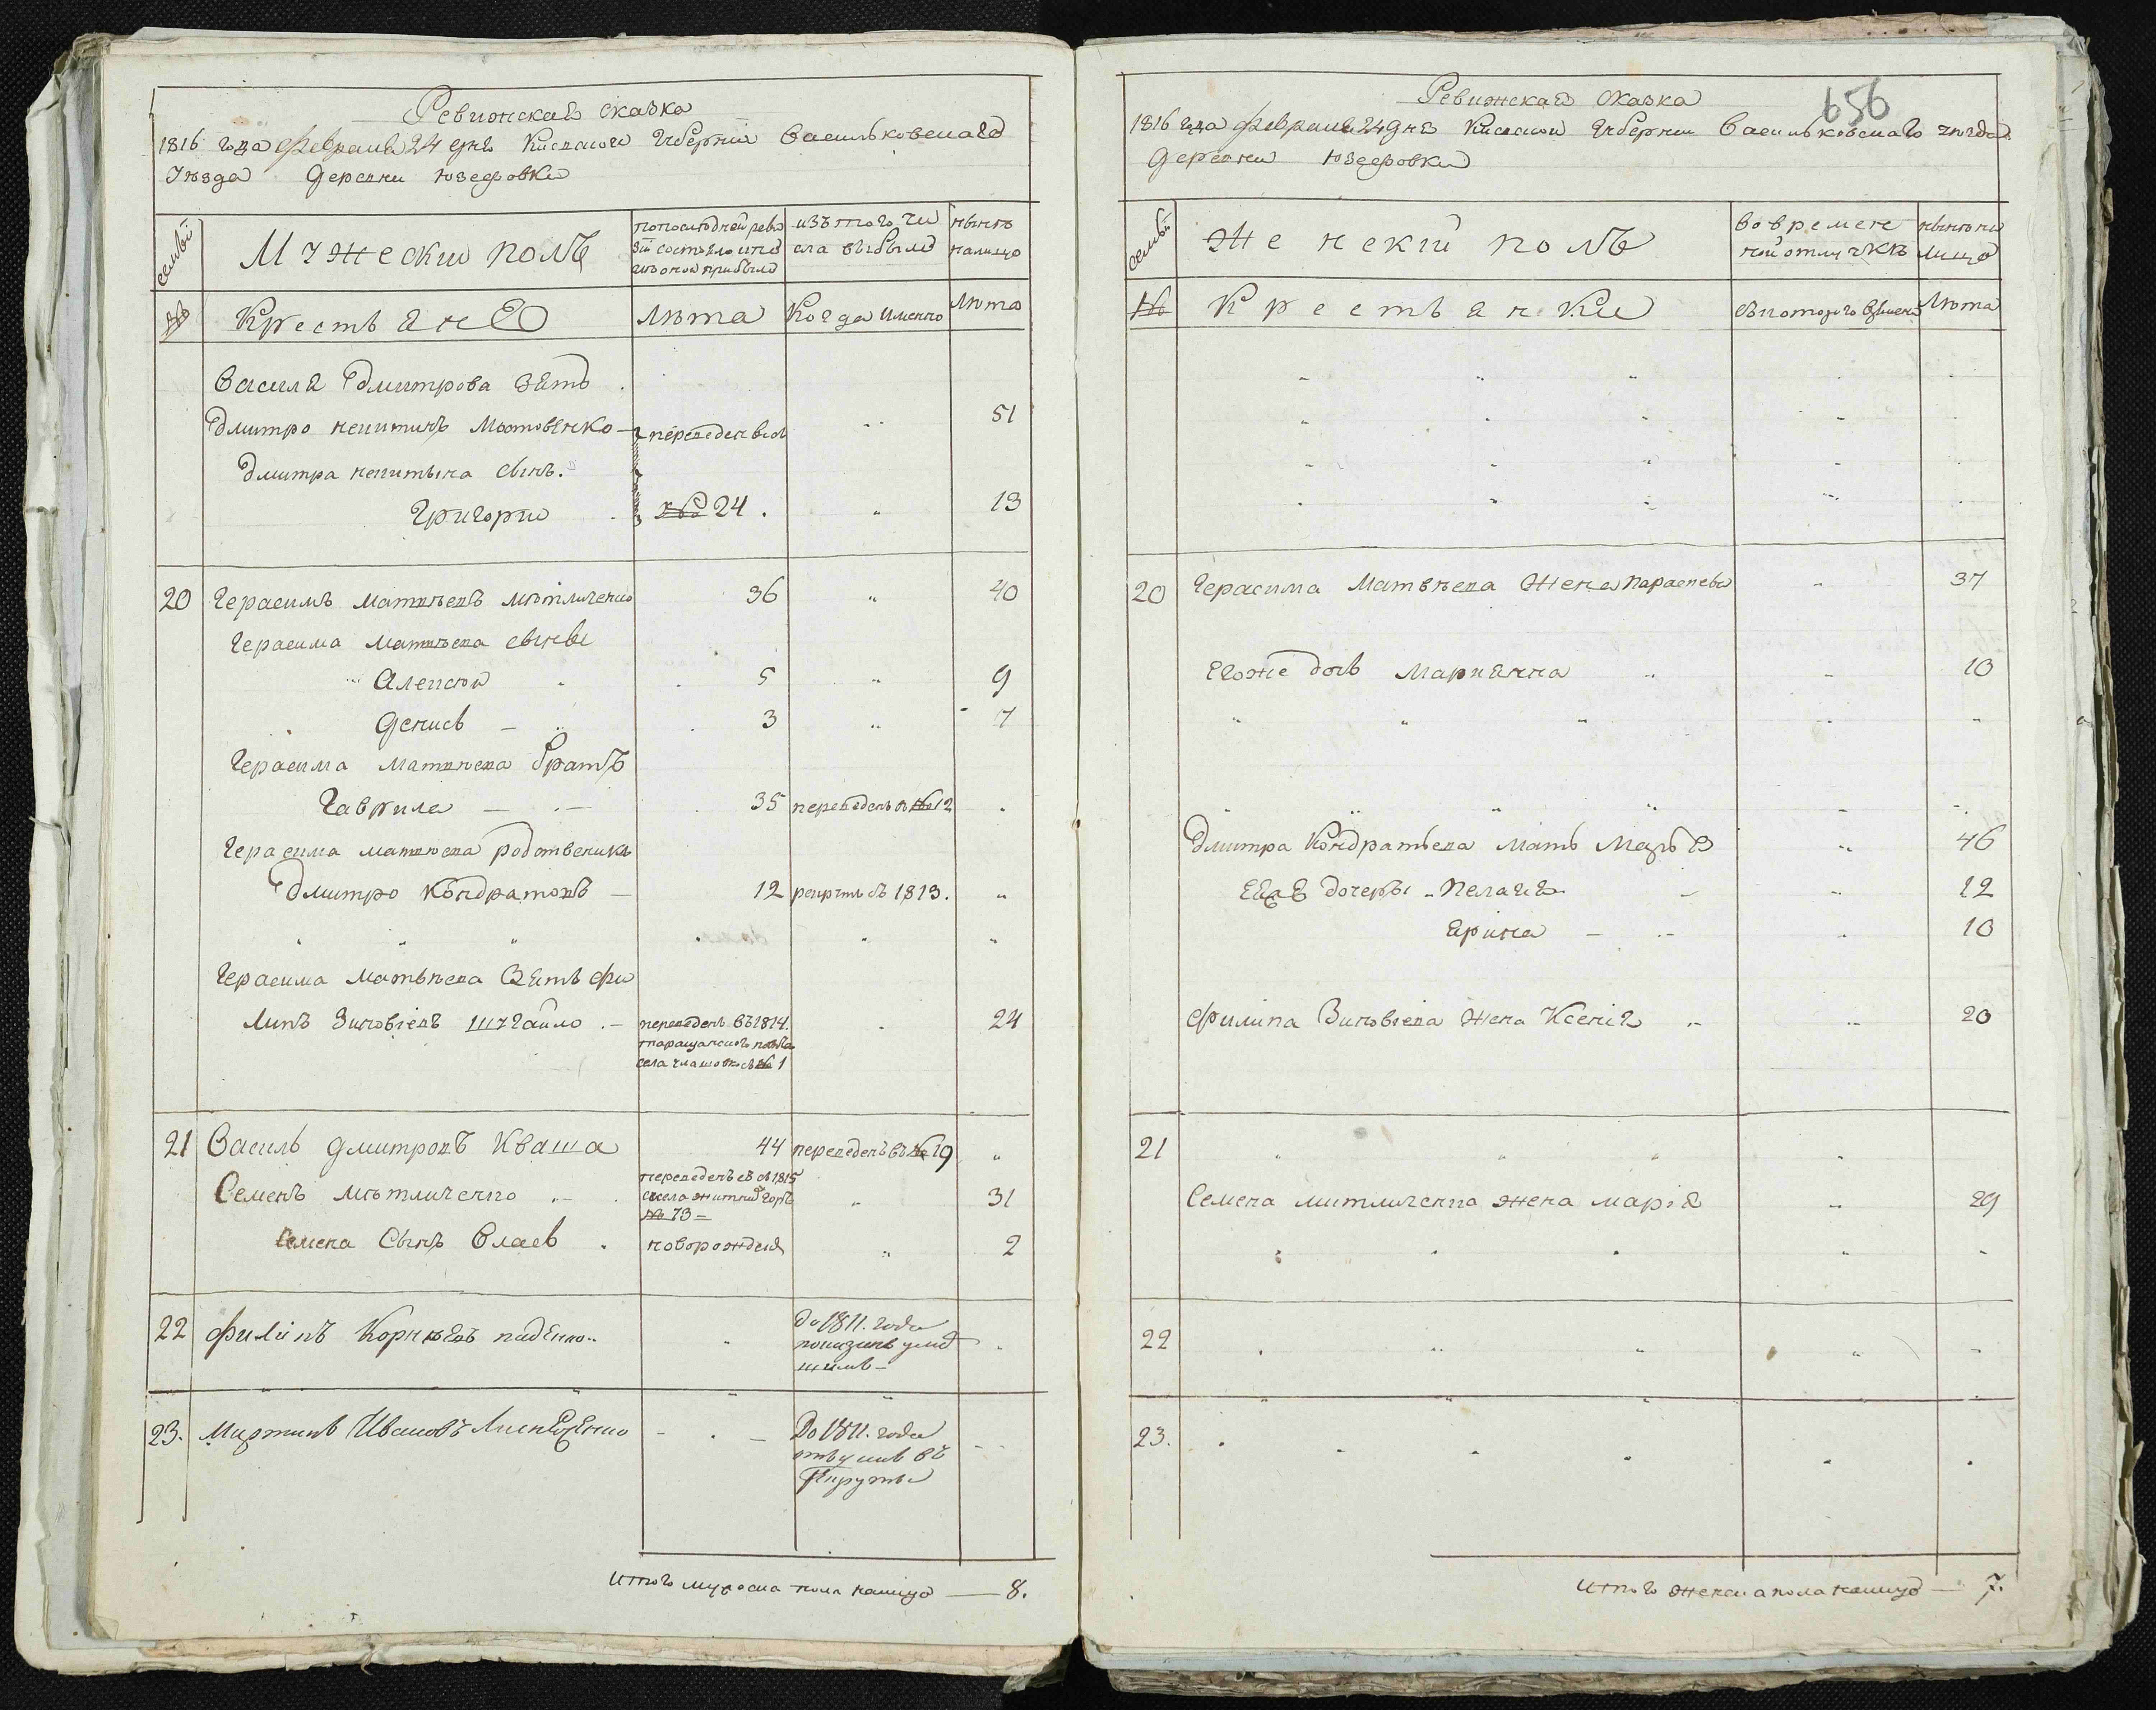 Ревижская сказка
1816 года февраля 24 дня Киевской Губернии Васильковскаго
Уезда Деревни Юзефовки
семьи
Мужески полъ
по последней реви
зіи состояло и по
сле оной прибыло
изъ того чи
сла выбыло
нынѣ
налицо
№
Крестьяне
Лѣта
Когда именно
Лѣта
Василя Дмитрова зять
Дмитро Никитинъ 51
переведен
Дмитра Никитина сынъ
Григорій № 24. " 13
20 Герасимъ Матвѣевъ Мѣтличенко 36 " 40
Герасима Матвѣева сыны
Алексей 5 " 9
Денисъ 3 " 7
Герасима Матвѣева братъ
Гаврила 35 переведенъ в №12
Герасима Матвѣева родственикъ
Дмитро Кондратовъ 12 рекрутъ въ 1813. "
Герасима Матьвѣева Зять Фи
липъ Зиновіевъ Шугайло переведенъ въ 1814. 24
таращанскаго
села №1
21 Василь Дмитровъ Кваша 44 переведенъ въ №19 "
Семенъ Мѣтличенко
переведенъ въ 1815
села Житни Горъ " 31
№ 73
Семена Сынъ Власъ новорожденъ " 2
22 Филипъ Корнѣевъ
до 1811. года
показанъ
23. Мартинъ Ивановъ
До 1811. года
Итого мужоска пола налицо — 8.
656
Ревижская сказка
1816 года февраля 24 дня Киевской Губернии Васильковскаго уезда
Деревни Юзефовки
семьи
Женскій полъ
во времен
ной отлучкѣ
нынѣ на
лицо
№
Крестьянки
съ котораго времени
Лѣта
20 Герасима Матвѣева Жена Параскева " 37
Егоже дочь Марианна " 10
Дмитра Кондратьева мать " 46
Ея дочеры Пелагия " 12
Ярина " 10
Филипа Зиновіева жена Ксенія " 20
21
Семена Митличенка жена Марія " 29
22
23.
Итого женска пола налицо — 7.